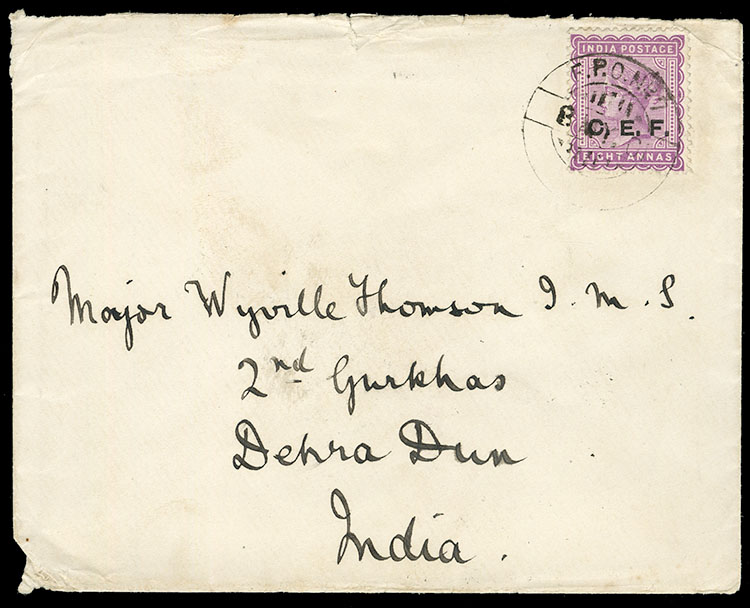 INDIA POSTAGE
F.P.O. No
B
C. E. F.
EIGHT ANNAS
Major Wyville Thomson I. M. S.
2nd Gurkhas
Dehra Dun
India.